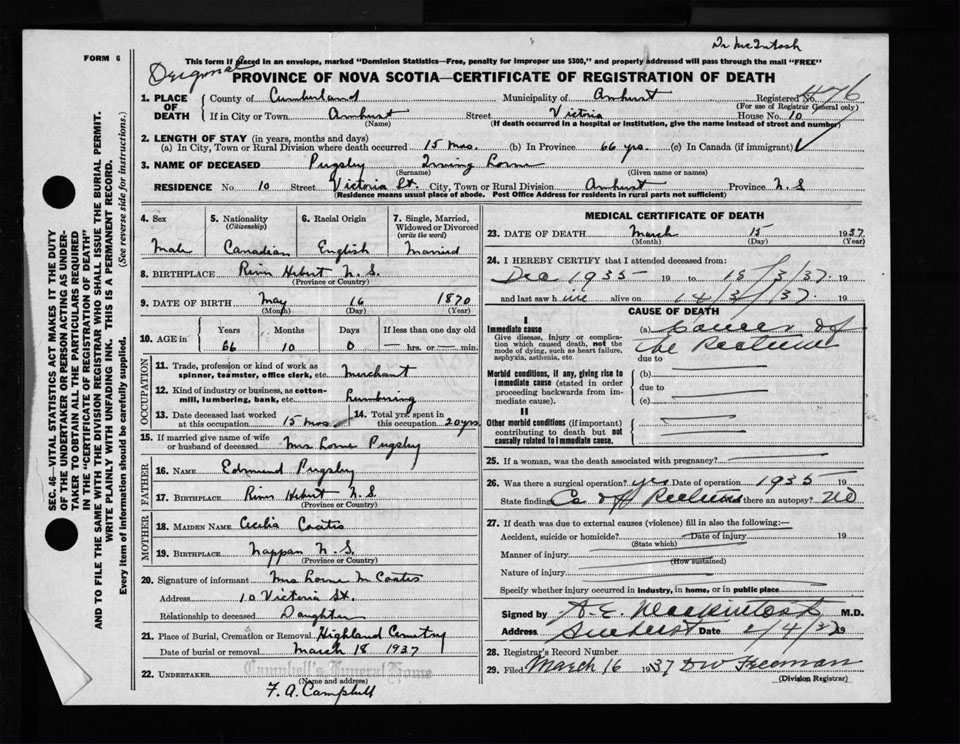 Dr McIntosh
FORM 6
This form if placed in an envelope, marked "Dominion Statistics—Free, penalty for improper use $300," and properly addressed will pass through the mail "FREE"
PROVINCE OF NOVA SCOTIA—CERTIFICATE OF REGISTRATION OF DEATH
1. PLACE OF DEATH County of Cumberland Municipality of Amherst Registered No. 476
(For use of Registrar General only)
If in City or Town Amherst Street Victoria House No. 10
(Name) (If death occurred in a hospital or institution, give the name instead of street and number)
2. LENGTH OF STAY (in years, months and days)
(a) In City, Town or Rural Division where death occurred 15 mos. (b) In Province 66 yrs. (c) In Canada (if immigrant)
3. NAME OF DECEASED Pugsley Irving Lorne
(Surname) (Given name or names)
RESIDENCE No. 10 Street Victoria St. City, Town or Rural Division Amherst Province N.S
(Residence means usual place of abode. Post Office Address for residents in rural parts not sufficient)
4. Sex
Male
5. Nationality
(Citizenship)
Canadian
6. Racial Origin
English
7. Single, Married, Widowed or Divorced
(write the word)
Married
8. BIRTHPLACE River Hebert N.S.
(Province or Country)
9. DATE OF BIRTH May 16 1870
(Month) (Day) (Year)
10. AGE in Years Months Days If less than one day old
66 10 0 hrs. or min.
OCCUPATION
11. Trade, profession or kind of work as
spinner, teamster, office clerk, etc. Merchant
12. Kind of industry or business, as cotton-
mill, lumbering, bank, etc. Lumbering
13. Date deceased last worked
at this occupation 15 mos.
14. Total yrs. spent in
this occupation 20 yrs.
15. If married give name of wife
or husband of deceased Mrs Lorne Pugsley
FATHER
16. NAME Edmund Pugsley
17. BIRTHPLACE River Hebert N.S.
(Province or Country)
MOTHER
18. MAIDEN NAME Cecilia Coates
19. BIRTHPLACE Nappan N.S.
(Province or Country)
20. Signature of informant Mrs Lorne M Coates
Address 10 Victoria St.
Relationship to deceased Daughter
21. Place of Burial, Cremation or Removal Highland Cemetery
Date of burial or removal March 18 1937
22. UNDERTAKER Campbell's Funeral Home
(Name and address)
F. A. Campbell
MEDICAL CERTIFICATE OF DEATH
23. DATE OF DEATH March 15 1937
(Month) (Day) (Year)
24. I HEREBY CERTIFY that I attended deceased from:
Dec 1935 19 to 15/3/37. 19
and last saw h im alive on 14/3/37. 19
CAUSE OF DEATH
I
Immediate cause
Give disease, injury or complica-
tion which caused death, not the
mode of dying, such as heart failure,
asphyxia, asthenia, etc.
(a) Cancer of
the Rectum
due to
Morbid conditions, if any, giving rise to
immediate cause (stated in order
proceeding backwards from im-
mediate cause).
(b)
due to
(c)
II
Other morbid conditions (if important)
contributing to death but not
causally related to immediate cause.
25. If a woman, was the death associated with pregnancy?
26. Was there a surgical operation? yes Date of operation 1935 19
State finding Ca of Rectum Was there an autopsy? No
27. If death was due to external causes (violence) fill in also the following:—
Accident, suicide or homicide? Date of injury 19
(State which)
Manner of injury
(How sustained)
Nature of injury
Specify whether injury occurred in industry, in home, or in public place
Signed by A. E. Mackintosh M.D.
Address Amherst Date 2/4/37 19
28. Registrar's Record Number
29. Filed March 16 1937 DW Freeman
(Division Registrar)
SEC. 46—VITAL STATISTICS ACT MAKES IT THE DUTY
OF THE UNDERTAKER OR PERSON ACTING AS UNDER-
TAKER TO OBTAIN ALL THE PARTICULARS REQUIRED
IN THE "CERTIFICATE OF REGISTRATION OF DEATH"
AND TO FILE THE SAME WITH THE DIVISION REGISTRAR WHO SHALL ISSUE THE BURIAL PERMIT.
WRITE PLAINLY WITH UNFADING INK. THIS IS A PERMANENT RECORD.
Every item of information should be carefully supplied. (See reverse side for instructions.)